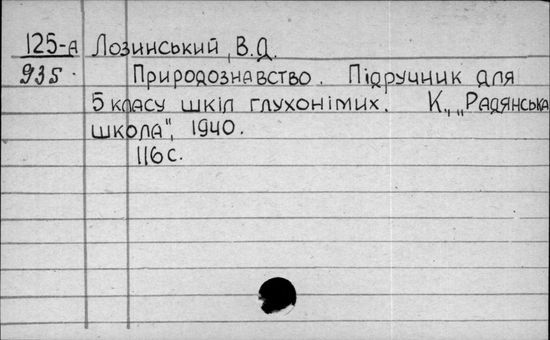 125-А Лозинський, В.Д.
935. Природознавство. Підручник для
5 класу шкіл глухонімих. К., „Радянська
школа", 1940.
116 с.